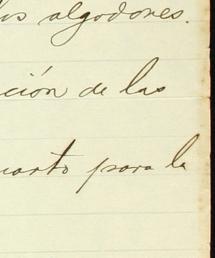 los algodones.
ción de las
uarto para la